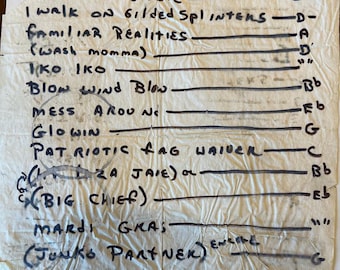 I WALK ON GILDED SPLINTERS — D-
FAMILIAR REALITIES — A
(WASH MOMMA) — D
IKO IKO — ""
BLOW WIND BLOW — Bb
MESS AROUND — Eb
GLOWIN — G
PATRIOTIC FLAG WAIVER — C
ZA JAIE) — Bb
(BIG CHIEF) — Eb
MARDI GRAS — ""
(JUNKO PARTNER) ENCORE — G